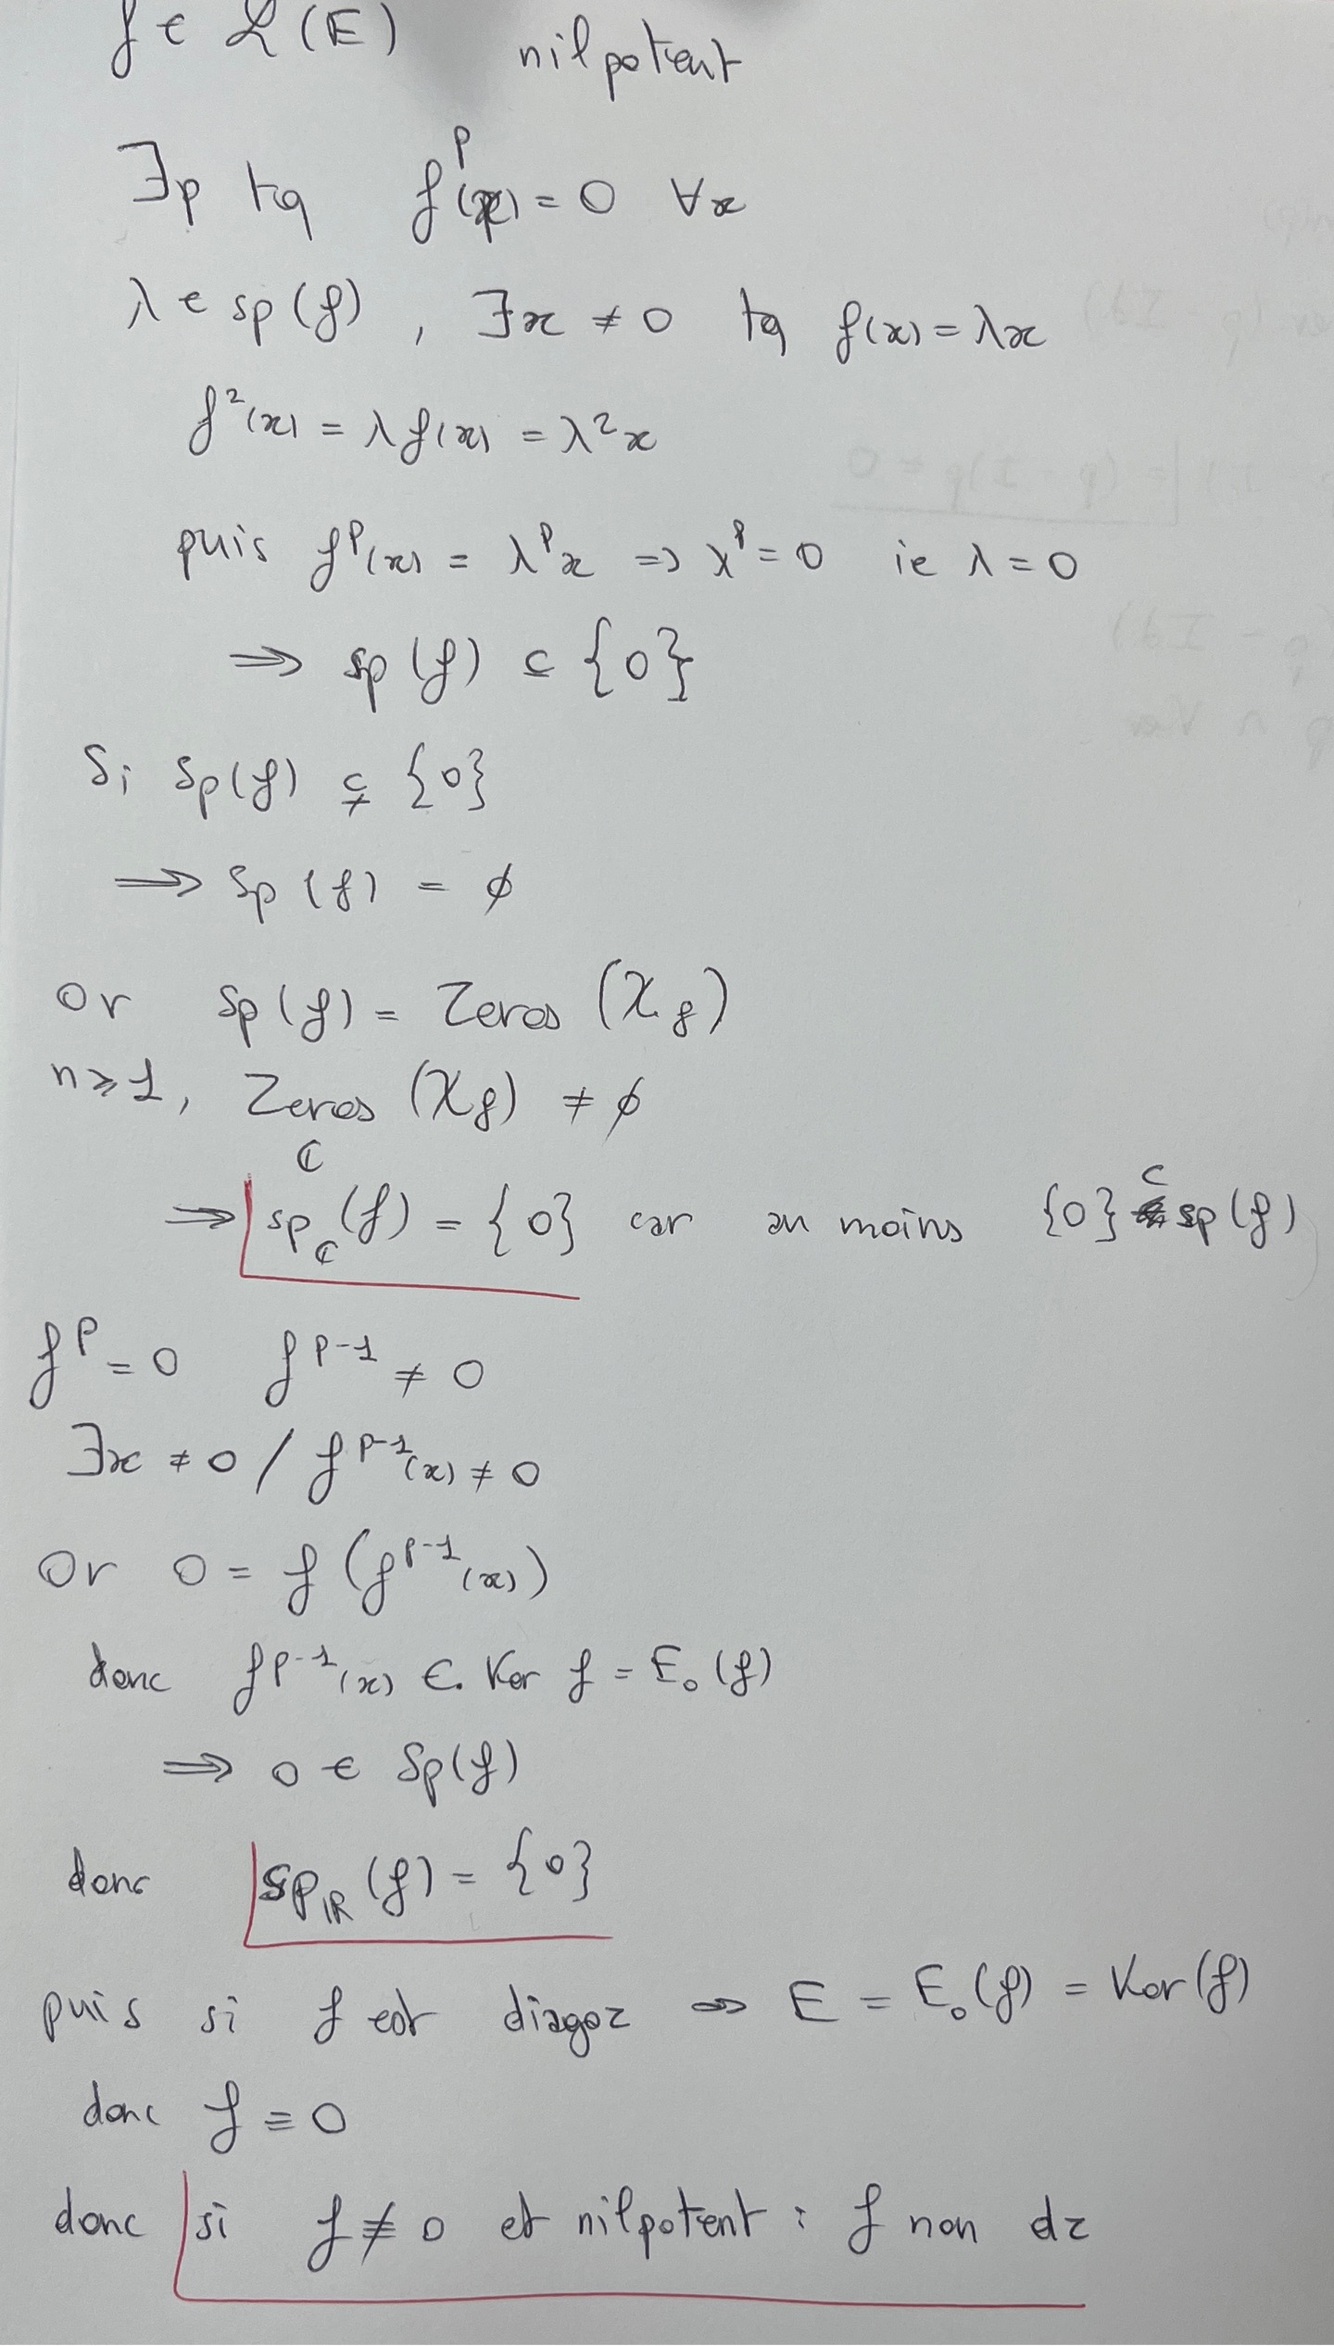 f ∈ ℒ(E) nilpotent
∃p tq f^p(x) = 0 ∀x
λ ∈ sp(f), ∃x ≠ 0 tq f(x) = λx
f²(x) = λf(x) = λ²x
puis f^p(x) = λ^p x => λ^p = 0 ie λ = 0
⟹ sp(f) ⊂ {0}
Si Sp(f) ⊊ {0}
⟹ Sp(f) = ∅
or sp(f) = Zeros (χ_f)
n ≥ 1, Zeros_ℂ (χ_f) ≠ ∅
⟹ sp_ℂ(f) = {0} car au moins {0} ⊂ sp(f)
f^p = 0 f^{p-1} ≠ 0
∃x ≠ 0 / f^{p-1}(x) ≠ 0
Or 0 = f(f^{p-1}(x))
donc f^{p-1}(x) ∈ Ker f = E₀(f)
⟹ 0 ∈ Sp(f)
donc Sp_ℝ(f) = {0}
puis si f est diagoz ⟹ E = E₀(f) = Ker(f)
donc f ≡ 0
donc si f ≢ 0 et nilpotent : f non dz